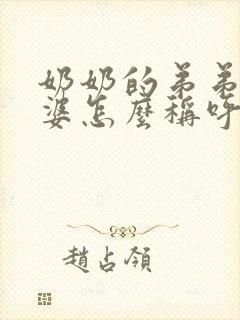 奶奶的弟弟
婆怎麼稱呼
趙占領